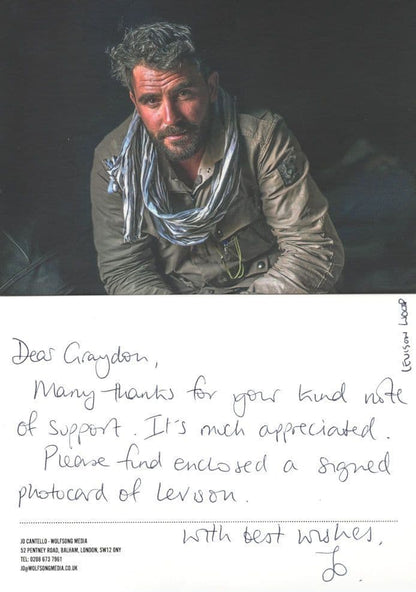 LEVISON WOOD
Dear Graydon,
Many thanks for your kind note
of support. It's much appreciated.
Please find enclosed a signed
photocard of Levison.
with best wishes,
Jo
JO CANTELLO - WOLFSONG MEDIA
52 PENTNEY ROAD, BALHAM, LONDON, SW12 0NY
TEL: 0208 673 7961
JO@WOLFSONGMEDIA.CO.UK